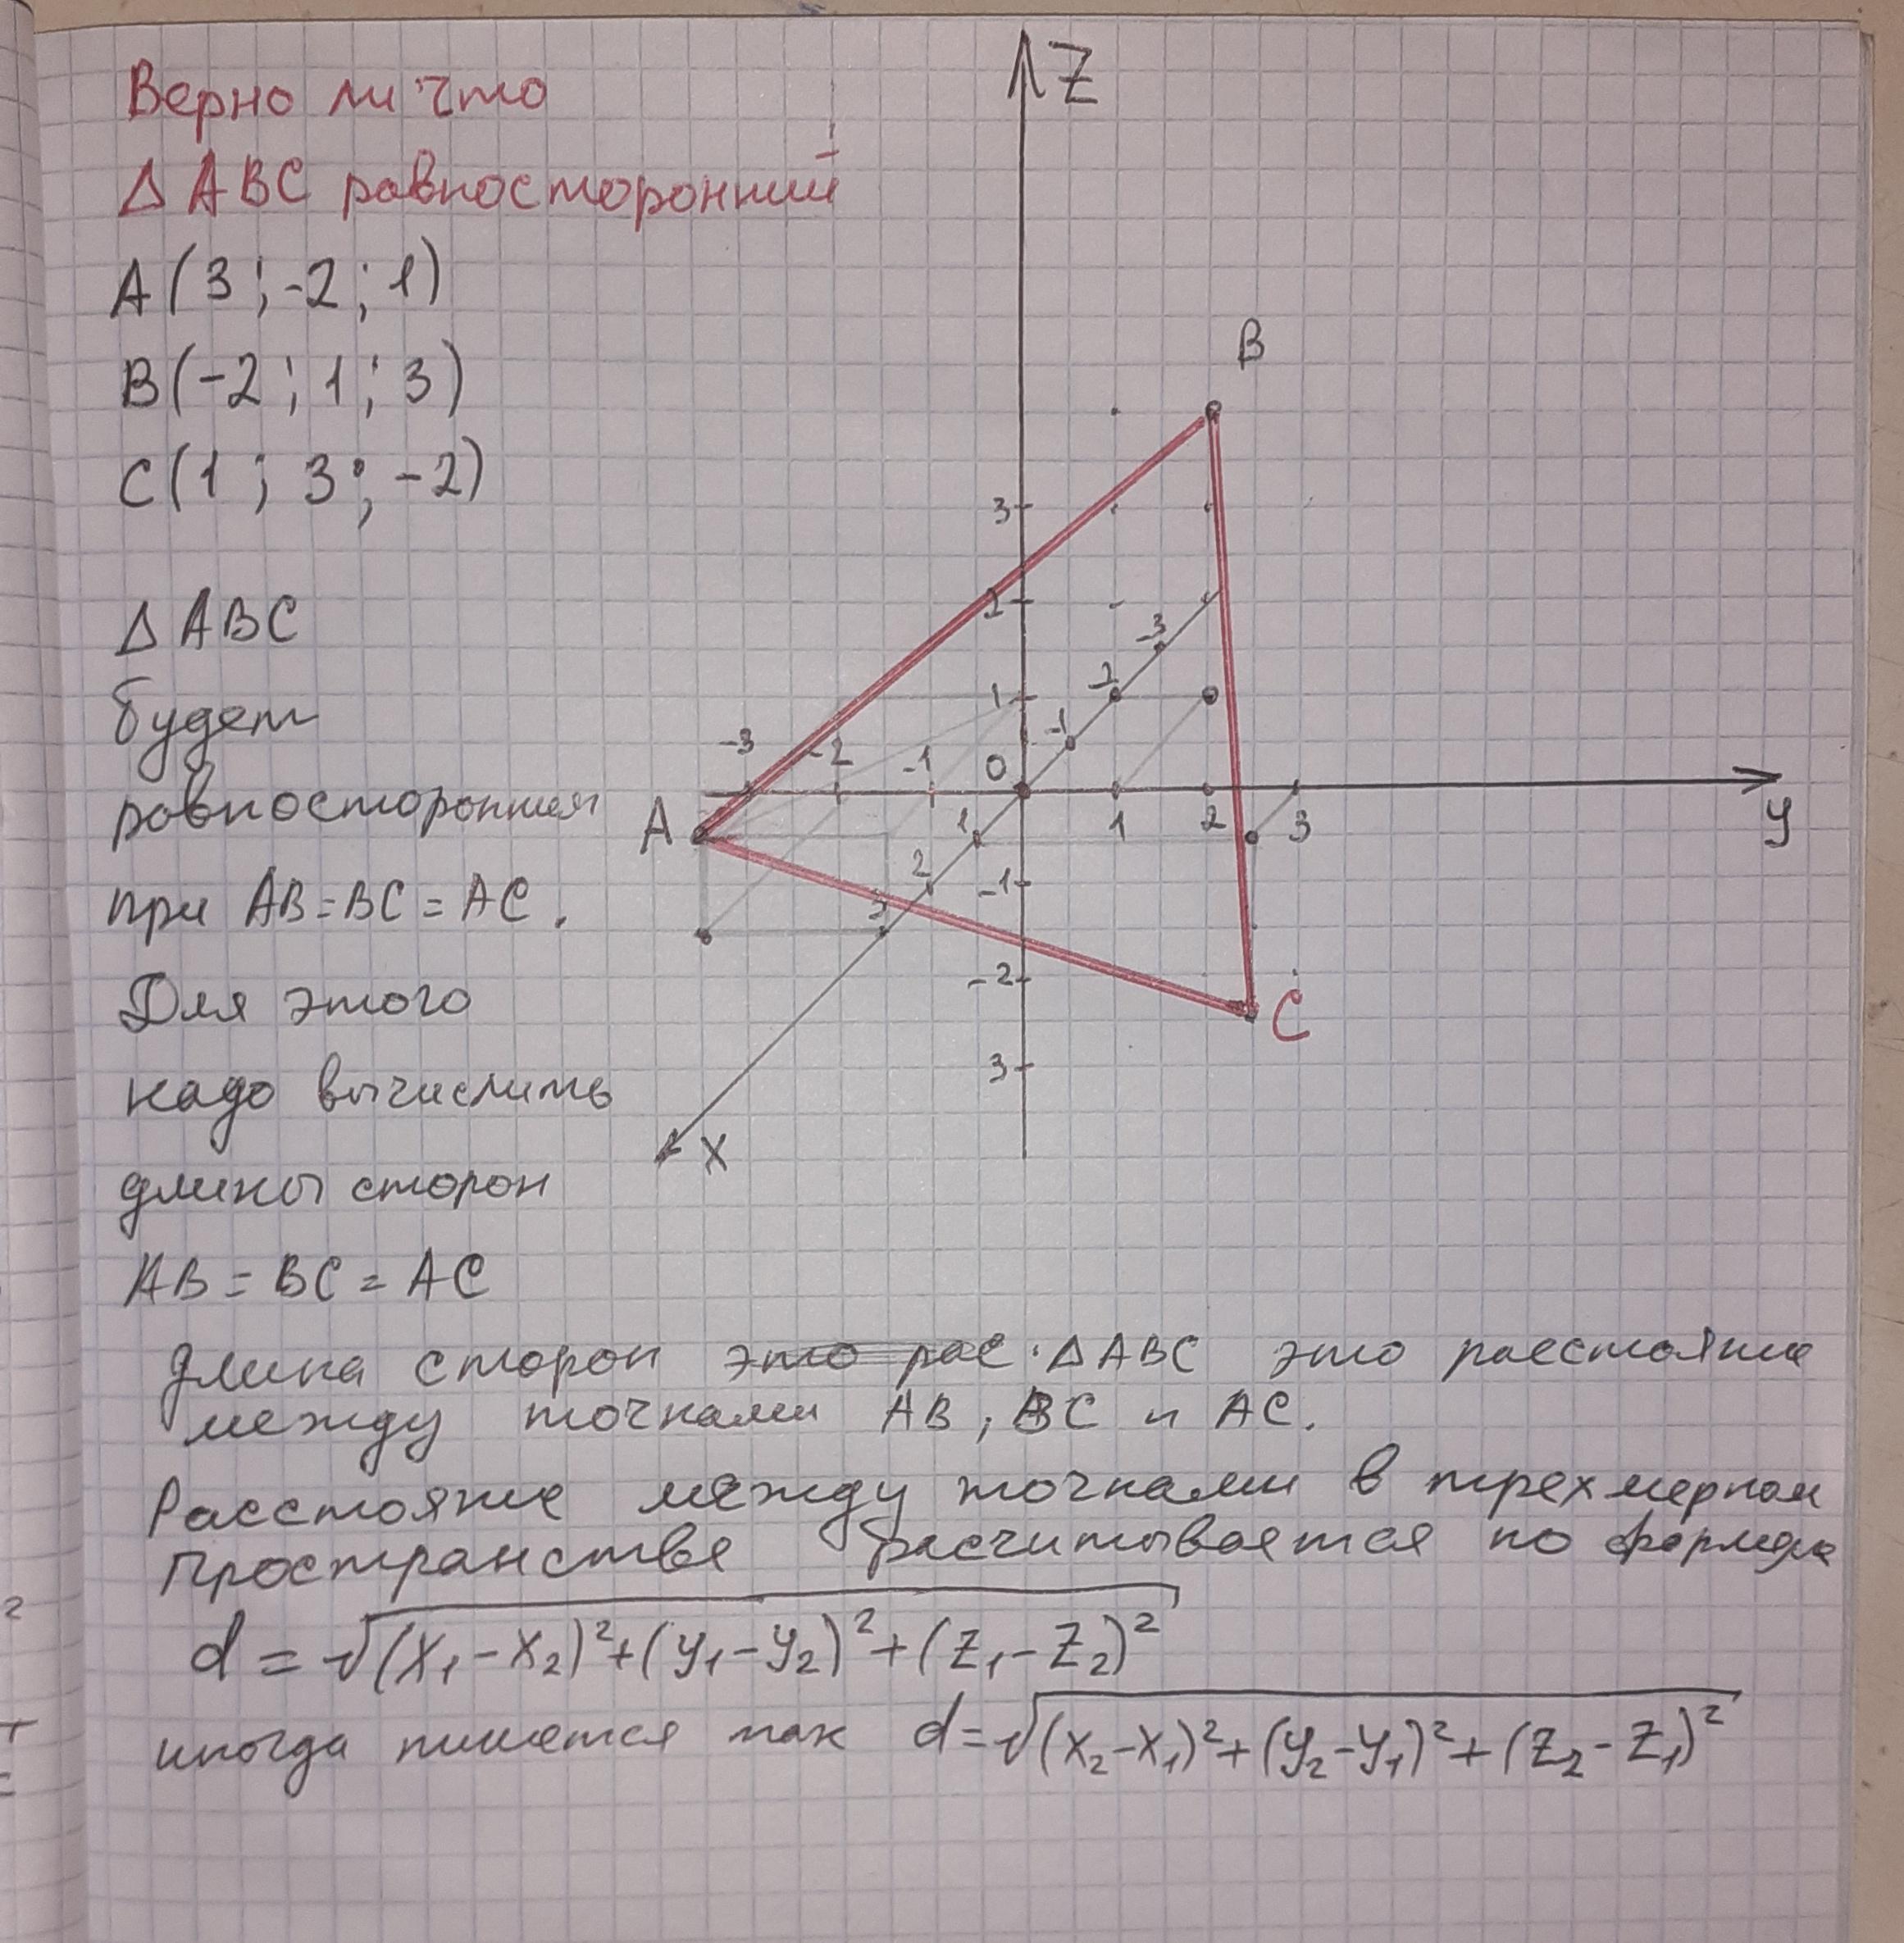 Верно ли что
Δ ABC равносторонний
A(3; -2; 1)
B(-2; 1; 3)
C(1; 3; -2)
Δ ABC
будет
равносторонним
при AB=BC=AC.
Для этого
надо вычислить
длины сторон
AB = BC = AC
Z
B
3
2
-3
1
-2
-3
-2
-1
0
-1
A
1
1
2
3
y
2
-1
3
-2
C
3
X
Длина сторон это рас. Δ ABC это расстояние
между точками AB, BC и AC.
Расстояние между точками в трехмерном
пространстве расчитывается по формуле
d = √(x₁-x₂)²+(y₁-y₂)²+(z₁-z₂)²
иногда пишется так d=√(x₂-x₁)²+(y₂-y₁)²+(z₂-z₁)²